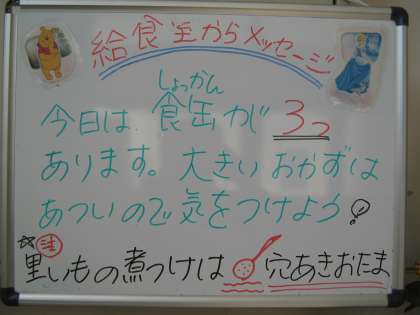 給食室からメッセージ
しょっかん
今日は、食缶が3つ
あります。大きいおかずは
あついので気をつけよう!
注
里いもの煮つけは 穴あきおたま